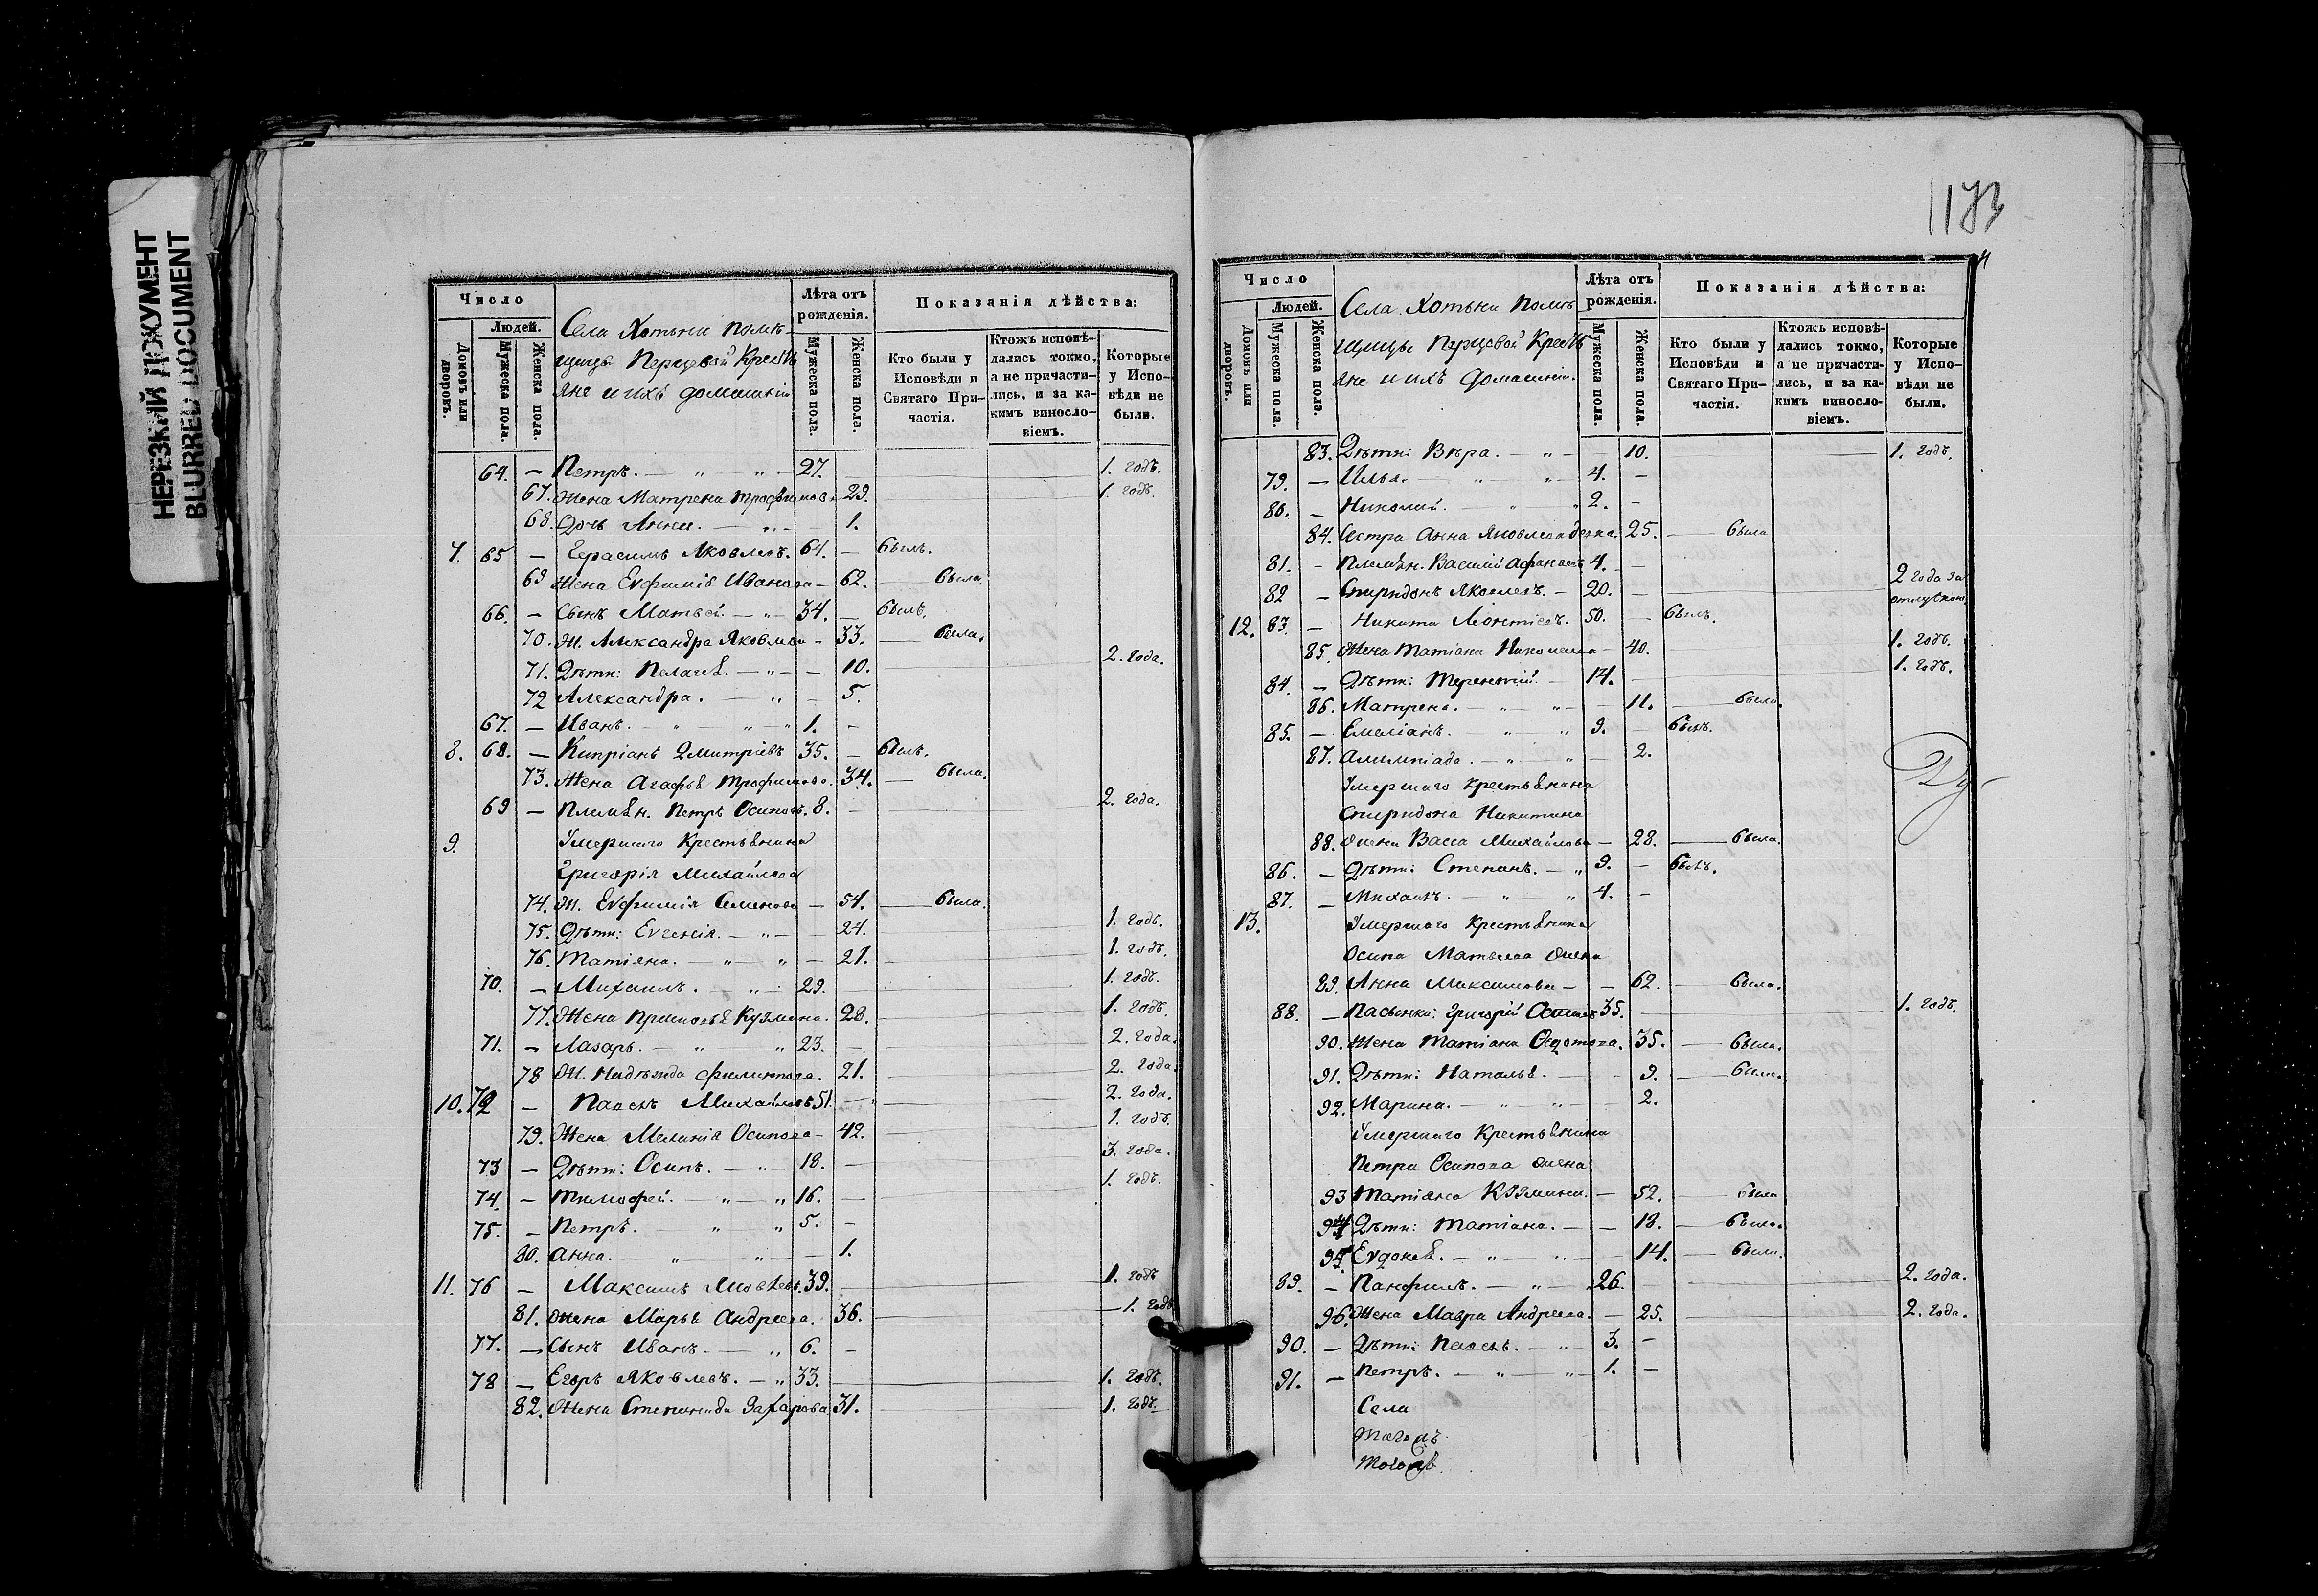 НЕРЕЗКИЙ ДОКУМЕНТ
BLURRED DOCUMENT
Число
Людей.
Домовъ или дворовъ.
Мужеска пола.
Женска пола.
Села Хотыни помѣ-
щицы Перцовой Кресть
яне и ихъ домашніи
Лѣта отъ рожденія.
Мужеска пола.
Женска пола.
Показанія дѣйства:
Кто были у Исповѣди и Святаго При-частія.
Ктожъ исповѣ-дались токмо, а не причасти-лись, и за ка-кимъ виносло-віемъ.
Которые у Испо-вѣди не были.
64. — Петръ. — „ — „ — 27. 1. годъ.
67. Жена Матрена Трофимова — 29. 1. годъ.
68. Дочь Анна. — „ — 1.
7. 65 — Герасимъ Яковлевъ. 64. — былъ.
69 Жена Евфимія Иванова — 62. — была.
66. — Сынъ Матвей. — „ — 34. — былъ.
70. Ж. Александра Яковлева — 33. — была.
71. Дѣти: Пелагея. — „ — 10. 2. года.
72 Александра. — „ — 5.
67. — Иванъ. — „ — „ — 1. —
8. 68. — Кипріанъ Дмитріевъ 35. — былъ.
73. Жена Агафья Трофимова. 34. — была.
69 — Племян. Петръ Осиповъ. 8. — 2. года.
9. Умершаго Крестьянина
Григорія Михайлова
74. Ж. Евфимія Семенова — 51. — была.
75. Дѣти: Евгенія. — „ — 24. 1. годъ.
76. Татіана. — „ — „ — 21. 1. годъ.
70. — Михаилъ. — „ — 29. 1. годъ.
77. Жена Прасковья Кузмина. 28. 1. годъ.
71. — Лазарь. — „ „ 23. — 2. года.
78 Ж. Надежда Филиппова. 21. 2. года.
10. 72 — Павелъ Михайловъ 51. — 2. года.
79. Жена Меланія Осипова — 42. 1. годъ.
73 — Дѣти: Осипъ. — „ — 18. — 3. года.
74. — Тимофей. — „ — „ 16. — 1. годъ.
75. — Петръ. — „ — „ 5. —
80. Анна. — „ — „ — 1.
11. 76 — Максимъ Яковлевъ. 39. — 1. годъ
81. Жена Марья Андреева. 36. — 1. годъ
77. — Сынъ Иванъ. — „ 6. —
78 — Егоръ Яковлевъ. — „ 33. — 1. годъ.
82. Жена Степанида Захарова. 31. 1. годъ.
Число
Людей.
Домовъ или дворовъ.
Мужеска пола.
Женска пола.
Села Хотыни помѣ
щицы Перцовой Кресть
яне и ихъ домашніи.
Лѣта отъ рожденія.
Мужеска пола.
Женска пола.
Показанія дѣйства:
Кто были у Исповѣди и Святаго При-частія.
Ктожъ исповѣ-дались токмо, а не причасти-лись, и за ка-кимъ виносло-віемъ.
Которые у Испо-вѣди не были.
83. Дѣти: Вѣра. — „ — 10. 1. годъ.
79. — Илья. — „ — „ — 4. —
80. — Николай. — „ — „ 2. —
84. Сестра Анна Яковлева девка. 25. — была
81. — Племян. Василій Афанасьев 4. —
82 — Спиридонъ Яковлевъ. — 20. — 2 года за
отлучкою
12. 83. — Никита Леонтіевъ. 50. — былъ.
85. Жена Татіана Николаева — 40. 1. годъ.
84. — Дѣти: Терентій. — 14. — 1. годъ.
86. Матрена. — „ — „ — 11. — была.
85. — Емеліанъ. — „ — „ 9. — былъ.
87. Алимпіада. — „ — „ — 2.
Умершаго Крестьянина
Спиридона Никитина
88. Жена Васса Михайлова — 28. — была.
86. — Дѣти: Степанъ. — „ 9. — былъ.
87. — Михаилъ. — „ — „ 4. —
13. Умершаго Крестьянина
Осипа Матвеева Жена
89. Анна Максимова — — 62. — была.
88. — Пасынки: Григорій Осиповъ 35. 1. годъ.
90. Жена Татіана Федотова. 35. — была.
91. Дѣти: Наталья. — — 9. — была.
92. Марина. — „ — „ — 2.
Умершаго Крестьянина
Петра Осипова Жена
93 Татіана Кузмина. — 52. — была
94 Дѣти: Татіана. — — 18. — была.
95 Евдокея. — „ — „ — 14. — была.
89. — Панфилъ. — „ — 26. — 2. года.
96. Жена Мавра Андреева. — 25. 2. года.
90. — Дѣти: Павелъ. — „ — 3. —
91. — Петръ. — „ — „ — 1. —
Села